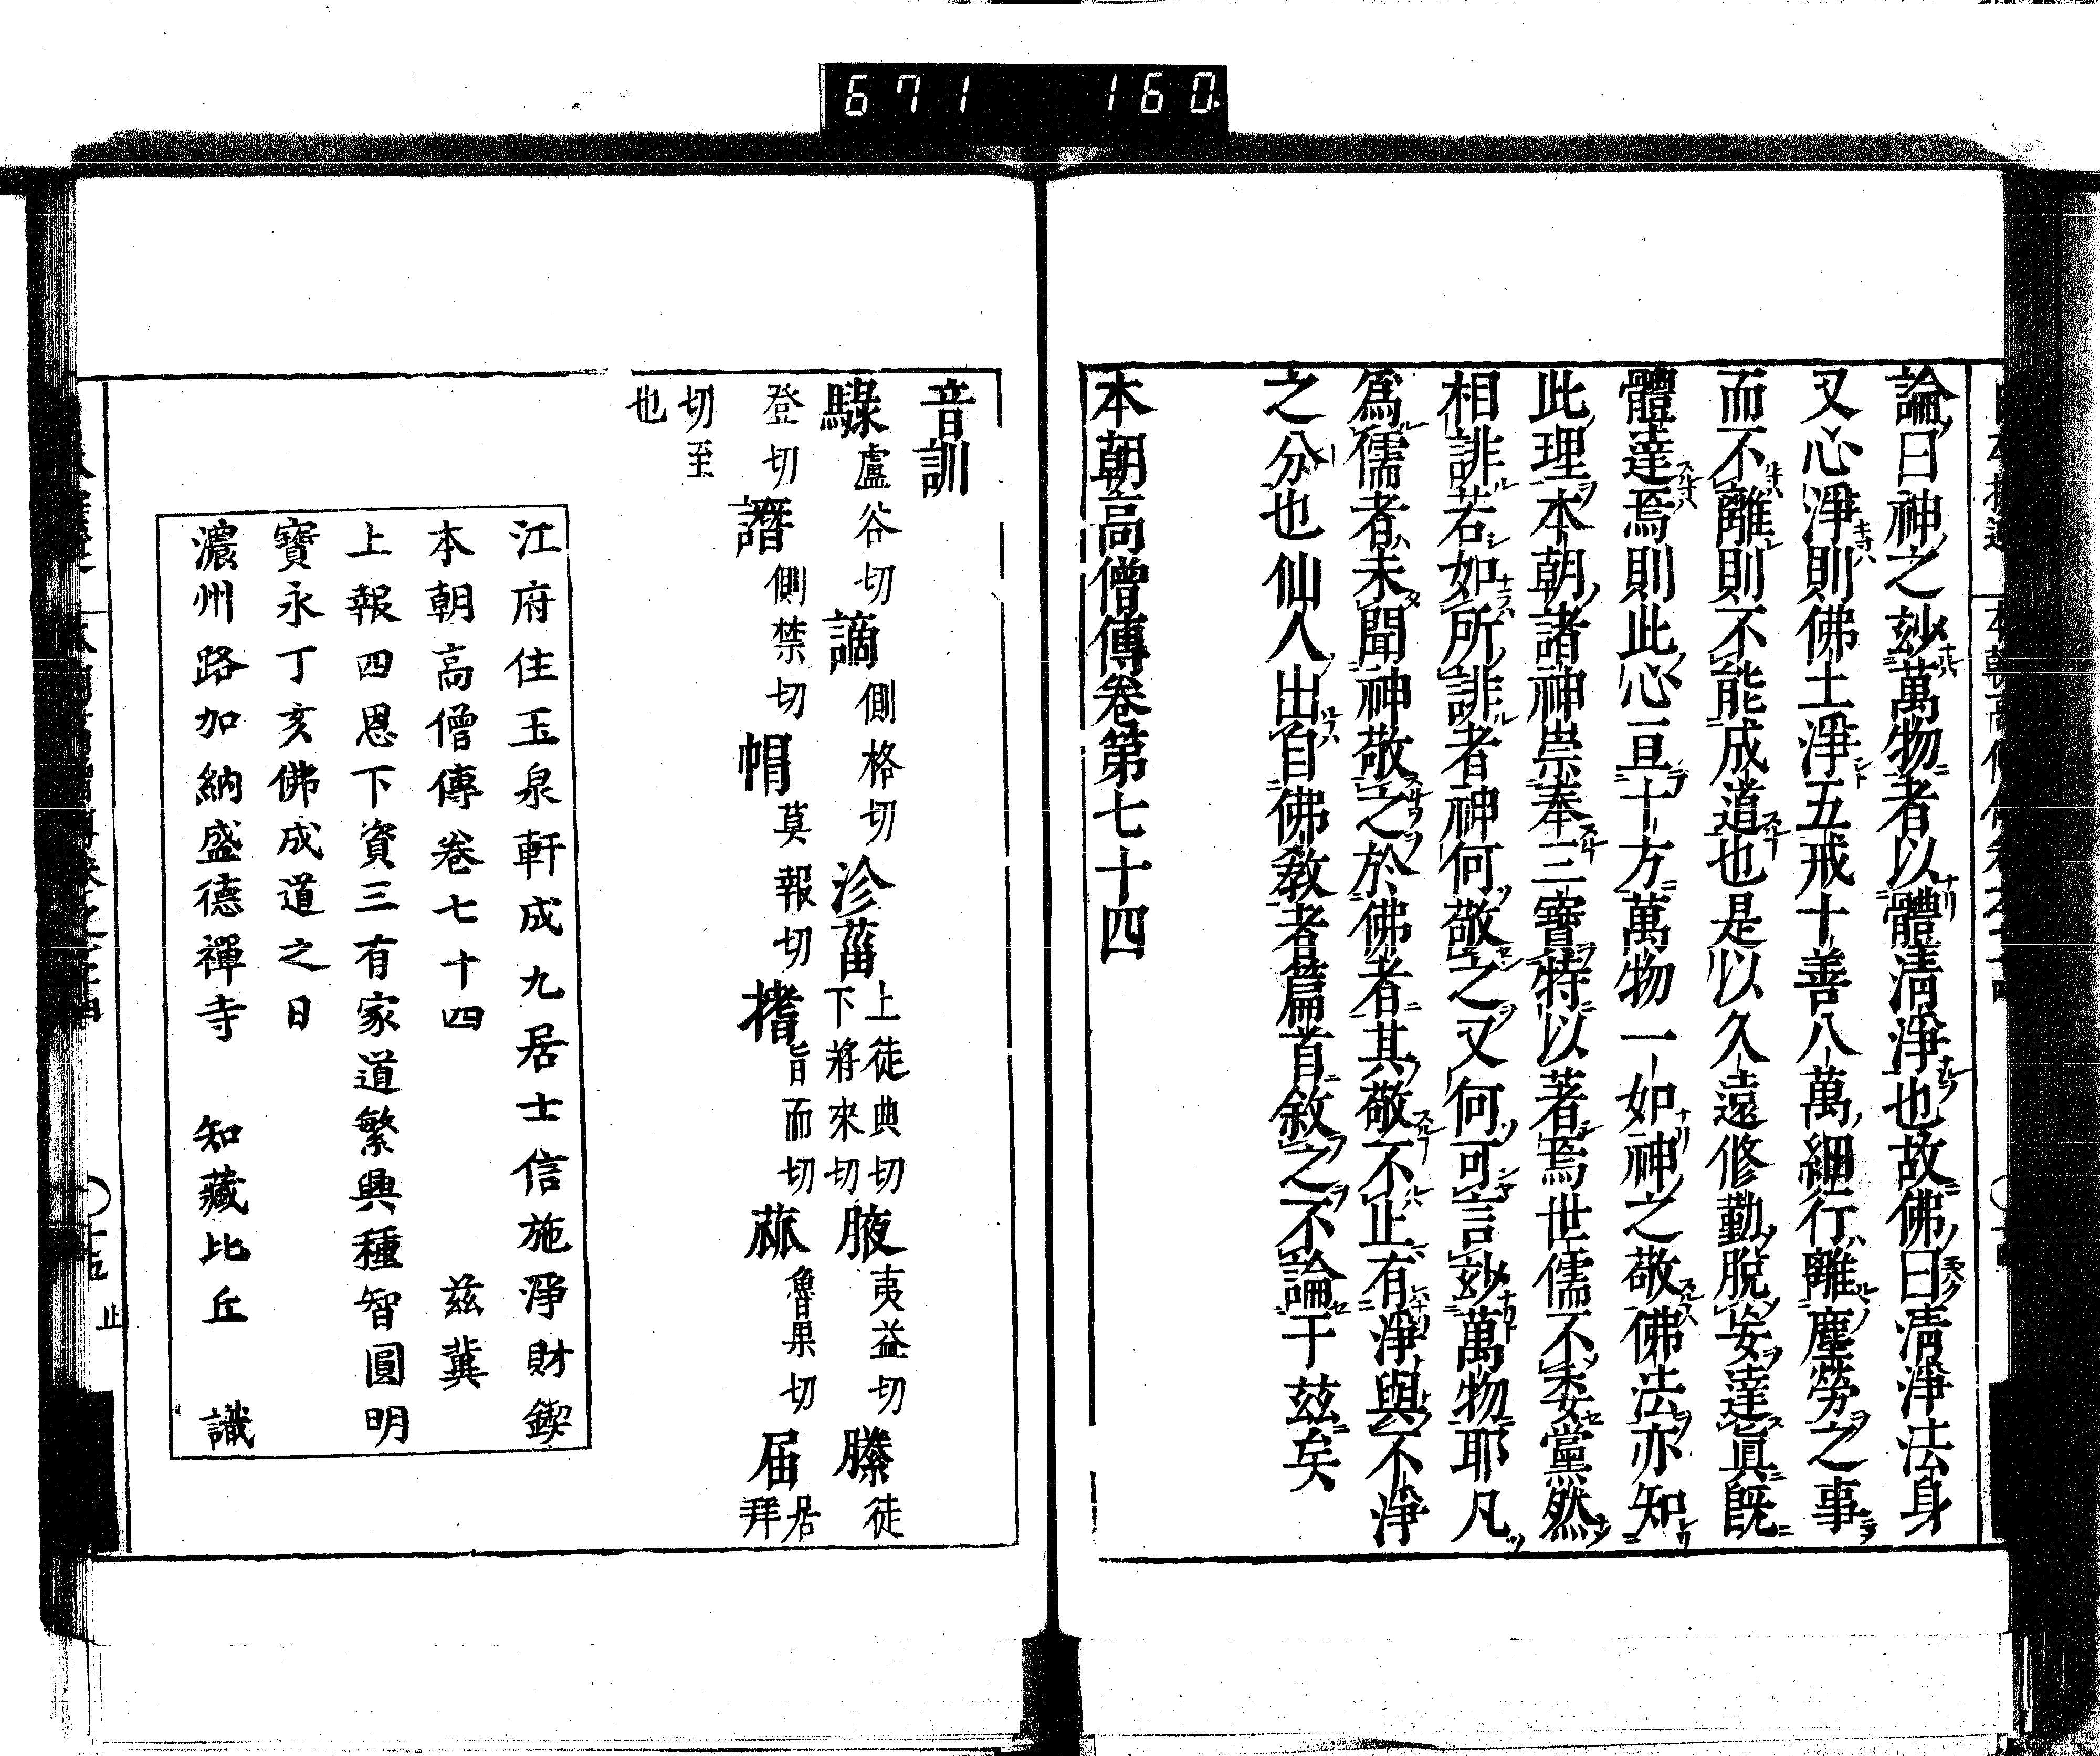 671 160
論曰神之玅萬物者以體清淨也故佛曰清淨法身
又心淨則佛土淨五戒十善八萬細行離塵勞之事
而不離則不能成道也是以久遠修勤脫妄達眞既
體達焉則此心亘十方萬物一如神之敬佛法亦知
此理本朝諸神崇奉三寶特以著焉世儒不委黨然
相誹若如所誹者神何敬之又何可言玅萬物耶凡
爲儒者未聞神敬之於佛者其敬不止有淨與不淨
之分也仙人出自佛教者篇首敘之不論于玆矣
本朝高僧傳卷第七十四
音訓
騄盧谷切謫側格切沴菑上徒典切下將來切腋夷益切縢徒
登切譖側禁切帽莫報切揝旨而切蓏魯果切届居拜
切至
也
江府住玉泉軒成九居士信施淨財鍥
本朝高僧傳卷七十四 茲冀
上報四恩下資三有家道繁興種智圓明
寶永丁亥佛成道之日
濃州路加納盛德禪寺 知藏比丘 識
止